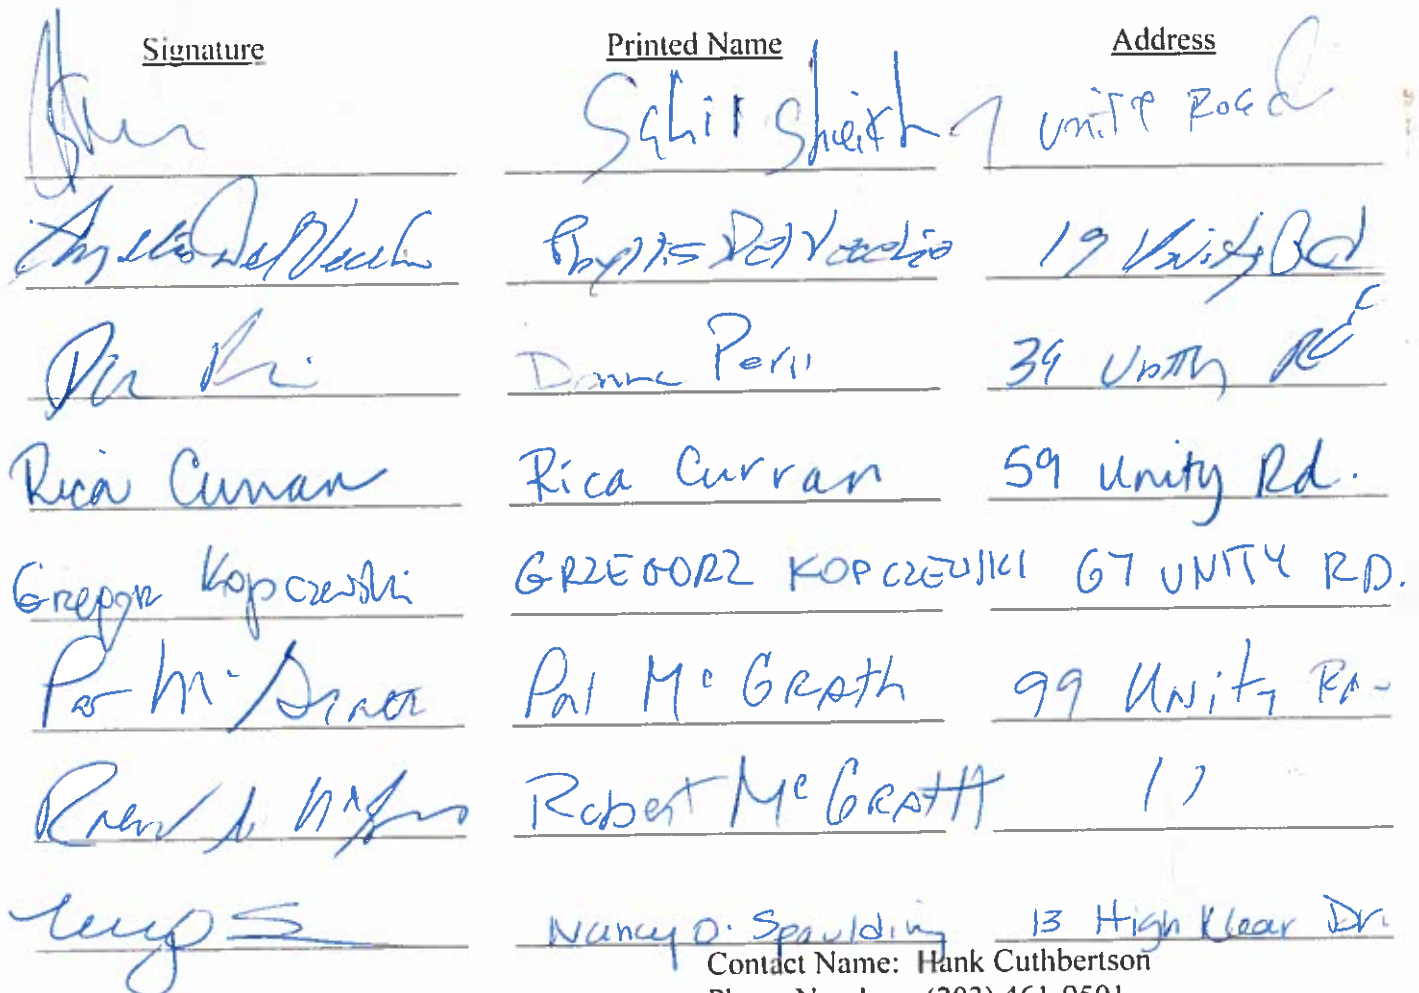 Signature Printed Name Address
Sahil Sheikh 7 Unity Road
Phyllis DelVecchio 19 Unity Rd
Donna Perii 39 Unity Rd
Rica Curran Rica Curran 59 Unity Rd.
Grzegorz Kopczewski GRZEGORZ KOPCZEWSKI 67 UNITY RD.
Pat McGrath Pat McGRAth 99 UNity Rd.
Robert McGRAtH "
Nancy O. Spaulding 13 High Klear Dr.
Contact Name: Hank Cuthbertson
(203) 461-9501